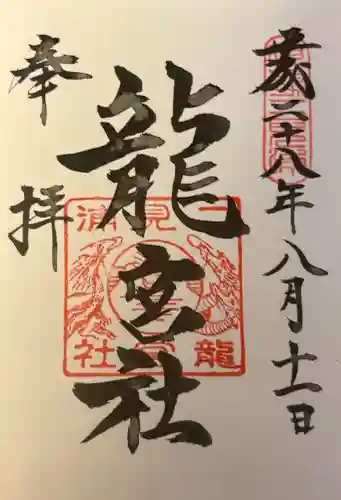 歳二十八年八月十一日
龍宮社
奉拝
二見浦
龍宮社